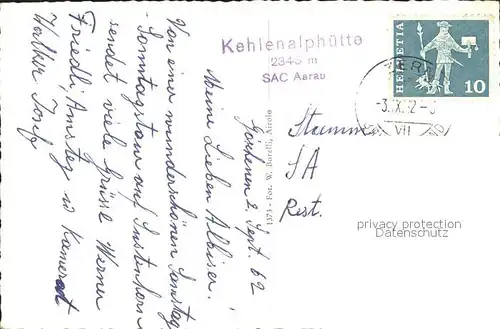 Kehlenalphütte
2345 m
SAC Aarau
HELVETIA
10
-3.IX.62-
VII
Göschenen 2. Sept. 62
Meine Lieben Albiser!
Von einer wunderschönen Samstag
Sonntagstour auf Sustenhorn
sendet viele Grüsse Werner
Friedli, Amsteg u Kamerat
Walker Josef
1373 - Fot. W. Borelli, Airolo
Stammer
SA
Rest.
privacy protection
Datenschutz